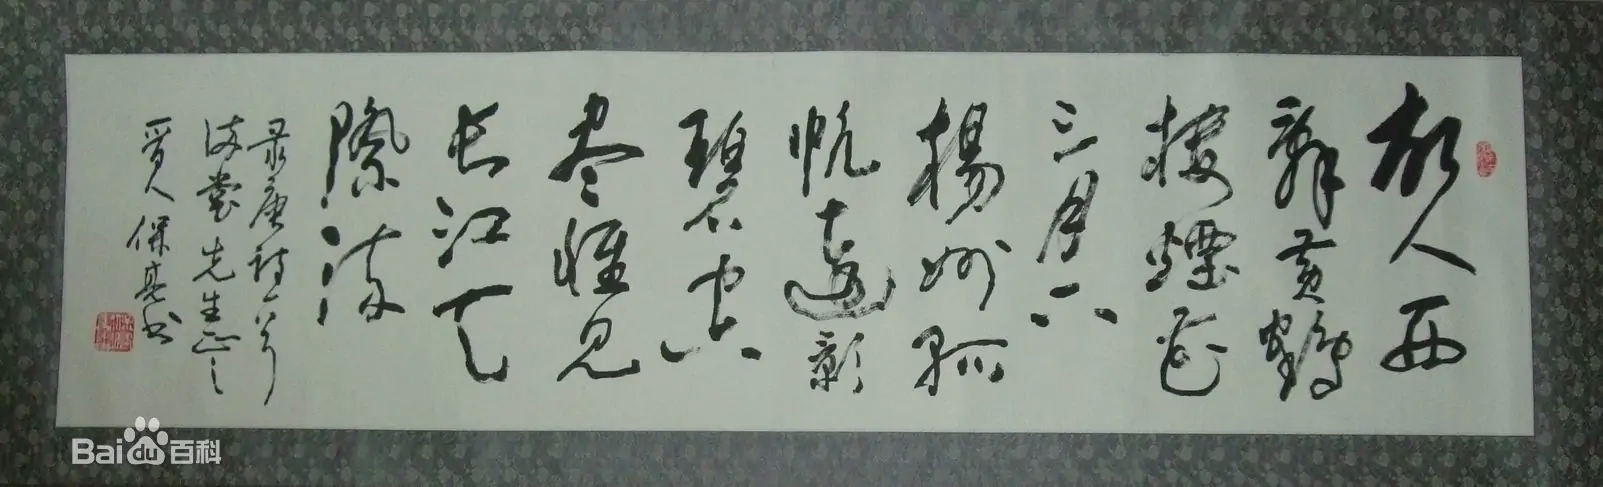 故人西
辞黄鹤
楼煙花
三月下
揚州孤
帆遠影
碧空
尽惟见
长江天
際流
录唐诗一首
先生正之
人保亮书
Bai du 百科